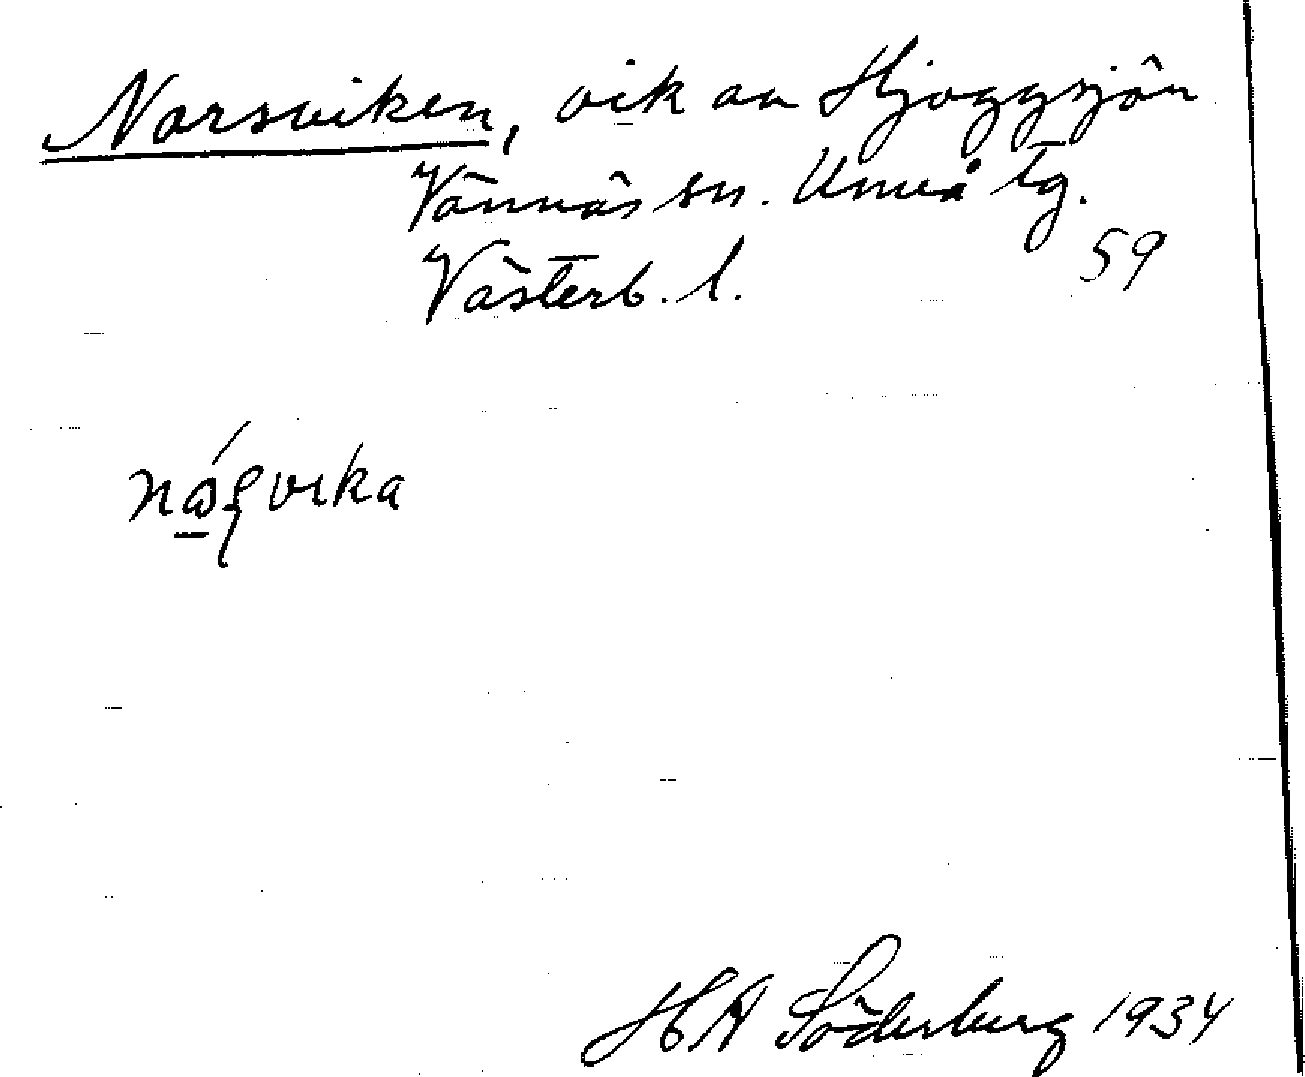 Norsviken, vik av Hjoggsjön
Vännäs sn. Umeå tg.
Västerb. l.
59
H A Söderberg 1934